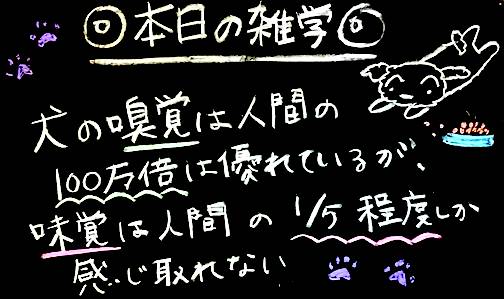 ◎本日の雑学◎
犬の嗅覚は人間の
100万倍は優れているが、
味覚は人間の1/5程度しか
感じ取れない